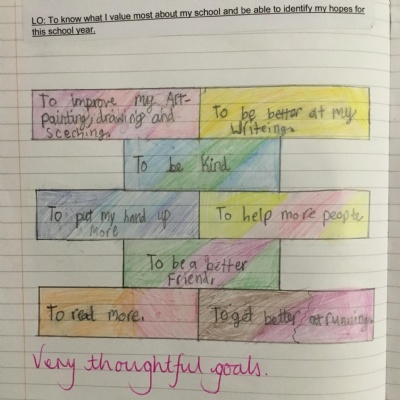 LO: To know what I value most about my school and be able to identify my hopes for
this school year.
To improve my Art-
painting, drawing and
sceching.
To be better at my
Writeing.
To be kind
To put my hand up
more
To help more people
To be a better
Friend.
To read more.
To get better at running.
Very thoughtful goals.